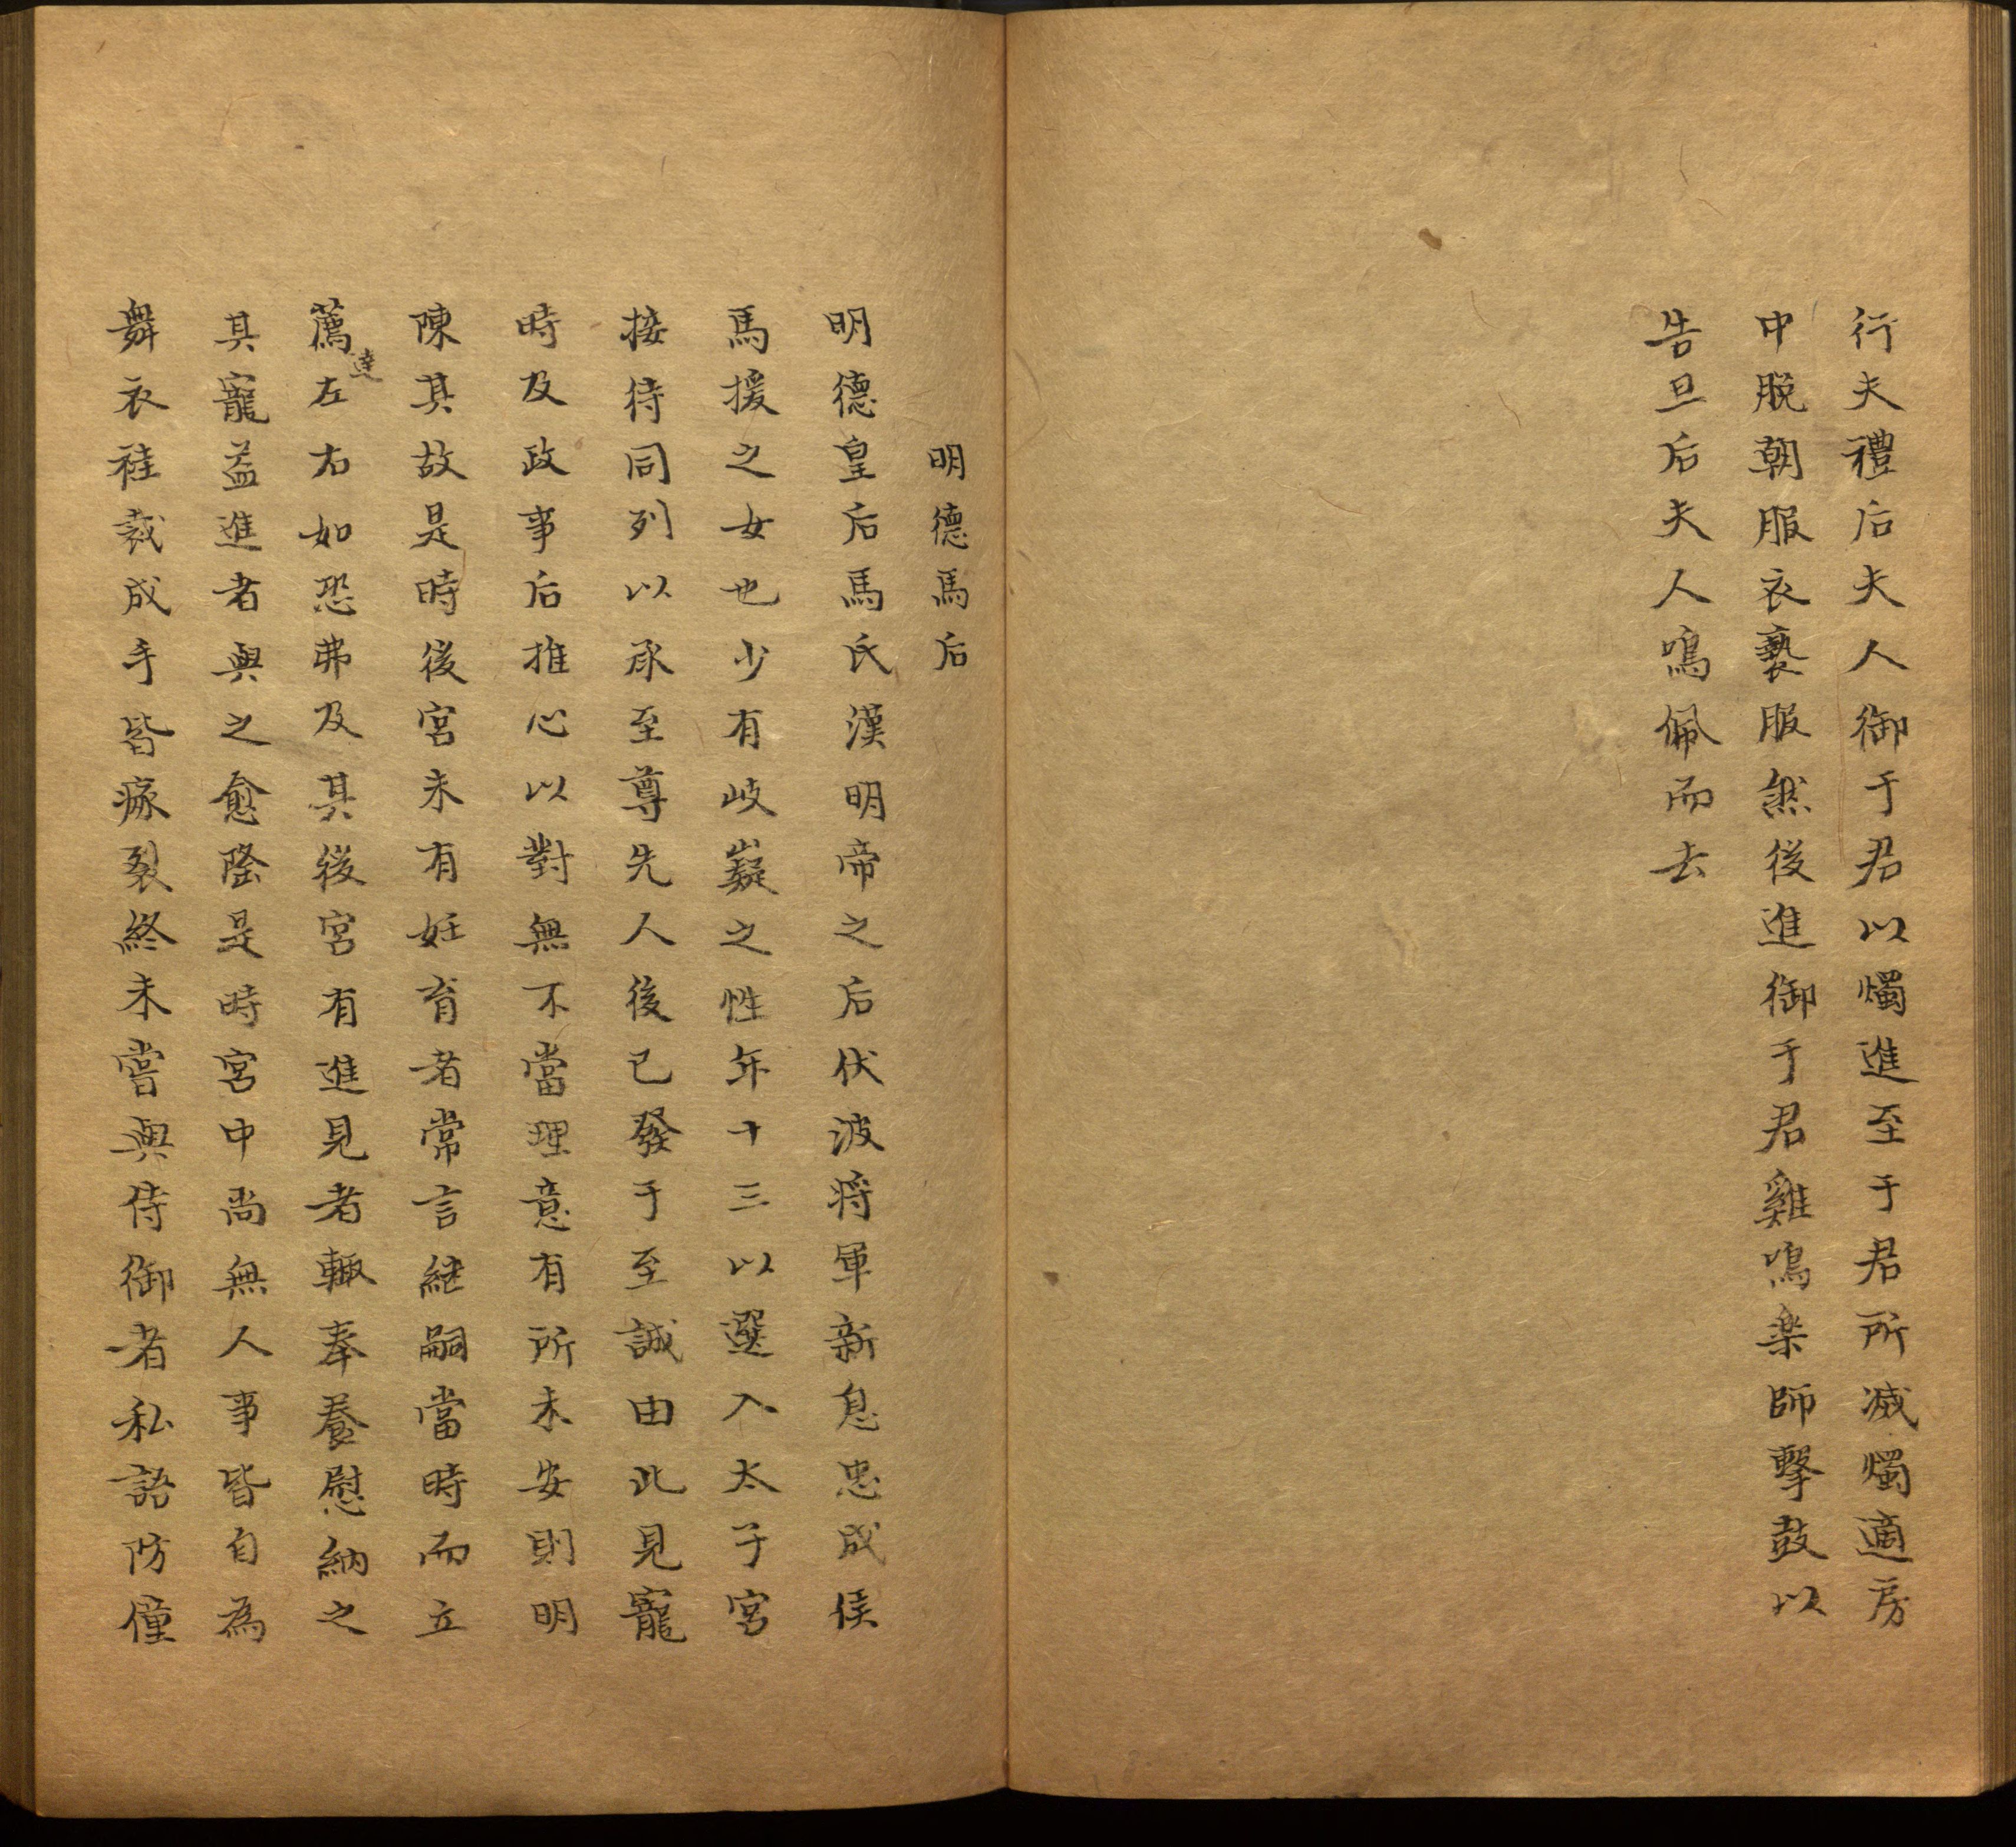 行夫禮后夫人御于君以燭進至于君所滅燭適房
中脱朝服衣褻服然後進御于君雞鳴楽師擊鼓以
告旦后夫人鳴佩而去
明德馬后
明德皇后馬氏漢明帝之后伏波將軍新息忠成侯
馬援之女也少有岐嶷之性年十三以選入太子宮
接待同列以承至尊先人後己發于至誠由此見寵
時及政事后推心以對無不當理意有所未安則明
陳其故是時後宮未有妊育者常言繼嗣當時而立
薦達左右如恐弗及其後宮有進見者輙奉養慰納之
其寵益進者與之愈隆是時宮中尚無人事皆自為
舞衣袿裁成手皆瘃裂終未嘗與侍御者私語防僮